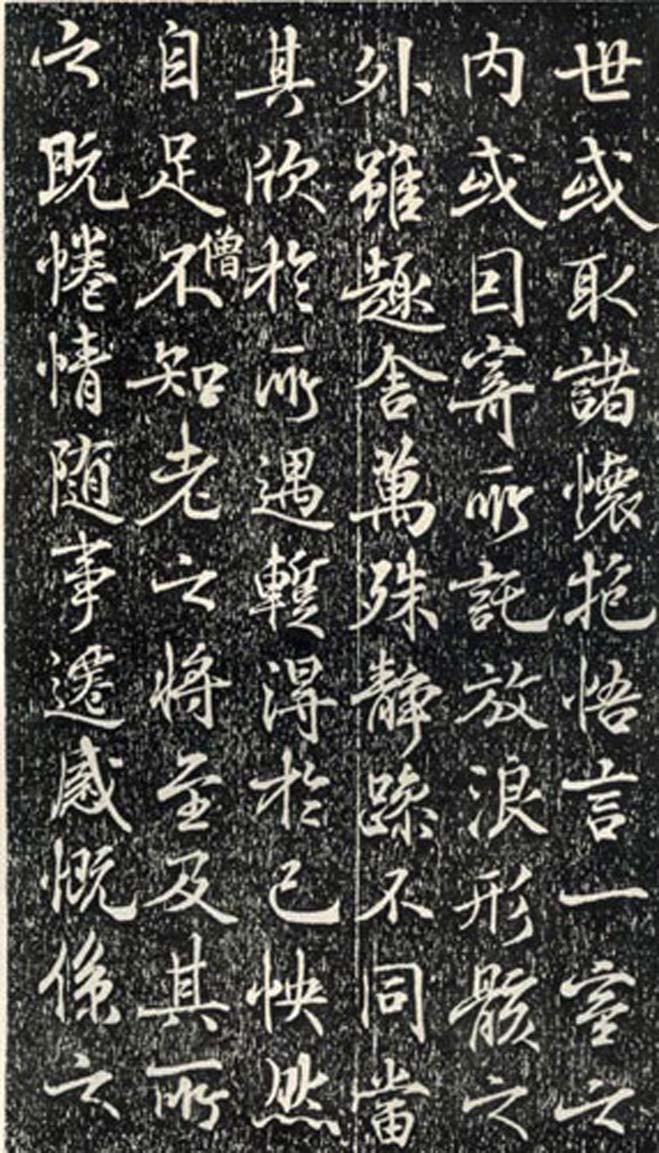 世或取諸懷抱悟言一室之
内或因寄所託放浪形骸之
外雖趣舍萬殊静躁不同當
其欣於所遇暫得於己怏然
僧
自足不知老之将至及其所
之既惓情随事遷感慨係之